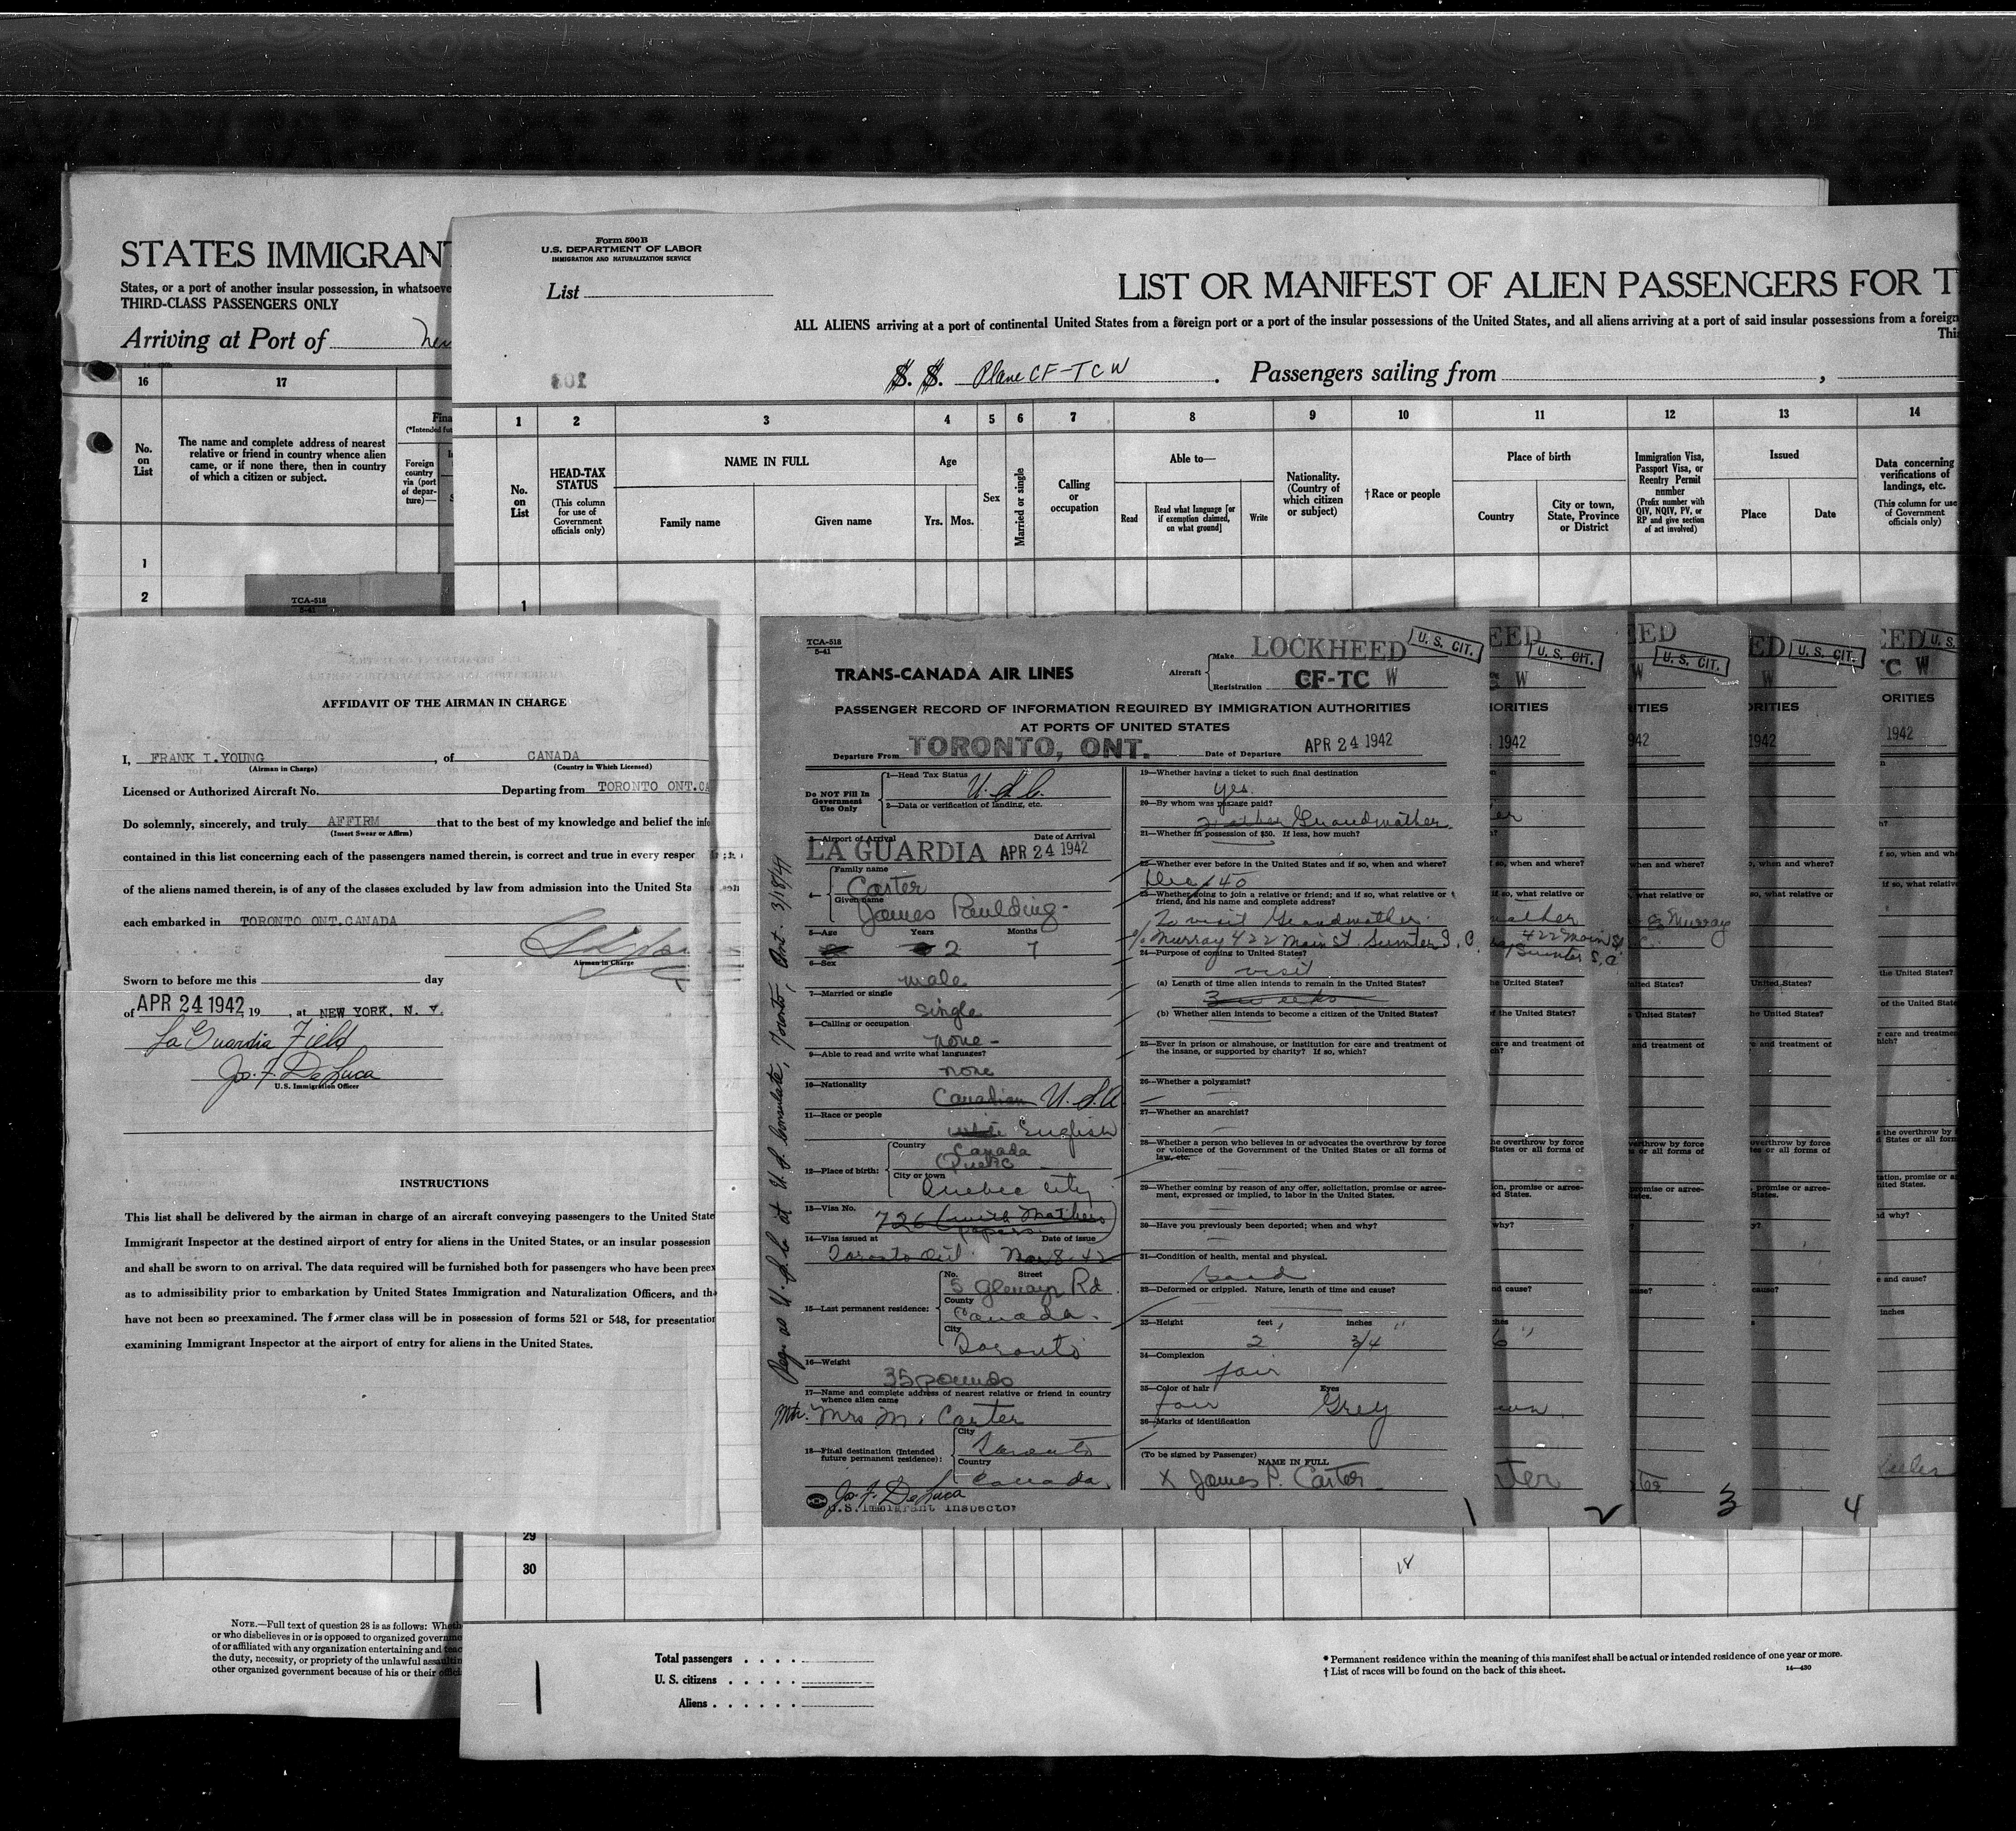 STATES IMMIGRANT
States, or a port of another insular possession, in whatsoeve
THIRD-CLASS PASSENGERS ONLY
Arriving at Port of
16
17
No. on List
The name and complete address of nearest
relative or friend in country whence alien
came, or if none there, then in country
of which a citizen or subject.
Fina
(*Intended fut
Foreign
country
via (port
of depar-
ture)—
1
2
TCA-518
5-41
Form 500B
U.S. DEPARTMENT OF LABOR
IMMIGRATION AND NATURALIZATION SERVICE
List
LIST OR MANIFEST OF ALIEN PASSENGERS FOR T
ALL ALIENS arriving at a port of continental United States from a foreign port or a port of the insular possessions of the United States, and all aliens arriving at a port of said insular possessions from a foreign
Thi
S. S. Plane CF-TCW . Passengers sailing from ,
1 2 3 4 5 6 7 8 9 10 11 12 13 14
No. on List
HEAD-TAX STATUS
(This column for use of Government officials only)
NAME IN FULL
Family name
Given name
Age
Yrs. Mos.
Sex
Married or single
Calling or occupation
Able to—
Read
Read what language [or if exemption claimed, on what ground]
Write
Nationality. (Country of which citizen or subject)
†Race or people
Place of birth
Country
City or town, State, Province or District
Immigration Visa, Passport Visa, or Reentry Permit number
(Prefix number with QIV, NQIV, PV, or RP and give section of act involved)
Issued
Place
Date
Data concerning verifications of landings, etc.
(This column for use of Government officials only)
1
AFFIDAVIT OF THE AIRMAN IN CHARGE
I, FRANK I.YOUNG , of CANADA
(Airman in Charge) (Country in Which Licensed)
Licensed or Authorized Aircraft No. Departing from TORONTO ONT.CA
Do solemnly, sincerely, and truly AFFIRM that to the best of my knowledge and belief the info
(Insert Swear or Affirm)
contained in this list concerning each of the passengers named therein, is correct and true in every respec
of the aliens named therein, is of any of the classes excluded by law from admission into the United Sta
each embarked in TORONTO ONT.CANADA
Airman in Charge
Sworn to before me this day
of APR 24 1942, 19 , at NEW YORK, N. Y.
La Guardia Field
Jos. F. De Luca
U.S. Immigration Officer
INSTRUCTIONS
This list shall be delivered by the airman in charge of an aircraft conveying passengers to the United State
Immigrant Inspector at the destined airport of entry for aliens in the United States, or an insular possession
and shall be sworn to on arrival. The data required will be furnished both for passengers who have been preex
as to admissibility prior to embarkation by United States Immigration and Naturalization Officers, and tha
have not been so preexamined. The former class will be in possession of forms 521 or 548, for presentation
examining Immigrant Inspector at the airport of entry for aliens in the United States.
TCA-518
5-41
TRANS-CANADA AIR LINES
Aircraft
Make LOCKHEED
Registration CF-TC W
U. S. CIT.
PASSENGER RECORD OF INFORMATION REQUIRED BY IMMIGRATION AUTHORITIES
AT PORTS OF UNITED STATES
Departure From TORONTO, ONT. Date of Departure APR 24 1942
Do NOT Fill In Government Use Only
1—Head Tax Status
U.S.C.
2—Data or verification of landing, etc.
3—Airport of Arrival Date of Arrival
LA GUARDIA APR 24 1942
4—
Family name
Carter
Given name
James Paulding
5—Age Years Months
2 7
6—Sex
male
7—Married or single
single
8—Calling or occupation
none -
9—Able to read and write what languages?
none
10—Nationality
Canadian U.S.A
11—Race or people
white English
12—Place of birth:
Country
Canada
Quebec
City or town
Quebec City
13—Visa No.
726 (with Mothers
papers)
14—Visa issued at Date of issue
Toronto Ont.
15—Last permanent residence:
No. Street
5 Glenayr Rd
County
Canada.
City
Toronto
16—Weight
35 pounds
17—Name and complete address of nearest relative or friend in country
whence alien came
Mtr. Mrs M. Carter
18—Final destination (Intended future permanent residence):
City
Toronto
Country
Canada.
Jos. F. De Luca
U.S. Immigrant Inspector
Reg. as U.S.C. at U.S. Consulate, Toronto, Ont. 3/18/41
19—Whether having a ticket to such final destination
yes.
20—By whom was passage paid?
Grandmother
21—Whether in possession of $50. If less, how much?
22—Whether ever before in the United States and if so, when and where?
23—Whether going to join a relative or friend; and if so, what relative or
friend, and his name and complete address?
To visit Grandmother.
c/o Murray 422 Main St. Sumter S. C.
24—Purpose of coming to United States?
visit
(a) Length of time alien intends to remain in the United States?
3 weeks
(b) Whether alien intends to become a citizen of the United States?
25—Ever in prison or almshouse, or institution for care and treatment of
the insane, or supported by charity? If so, which?
26—Whether a polygamist?
27—Whether an anarchist?
28—Whether a person who believes in or advocates the overthrow by force
or violence of the Government of the United States or all forms of
law, etc.
29—Whether coming by reason of any offer, solicitation, promise or agree-
ment, expressed or implied, to labor in the United States.
30—Have you previously been deported; when and why?
31—Condition of health, mental and physical.
Good
32—Deformed or crippled. Nature, length of time and cause?
33—Height feet inches
2 3/4
34—Complexion
fair
35—Color of hair Eyes
fair Grey
36—Marks of identification
(To be signed by Passenger)
NAME IN FULL
X James P. Carter
1
U. S. CIT.
1942
422 Main St
Sumter S. C
2
U. S. CIT.
Murray
3
U. S. CIT.
1942
4
U. S.
1942
29
30
18
NOTE.—Full text of question 28 is as follows: Wheth
or who disbelieves in or is opposed to organized governme
of or affiliated with any organization entertaining and teac
the duty, necessity, or propriety of the unlawful assaultin
other organized government because of his or their offici
Total passengers . . . .
U. S. citizens . . . . .
Aliens . . . . . .
* Permanent residence within the meaning of this manifest shall be actual or intended residence of one year or more.
† List of races will be found on the back of this sheet.
14—430